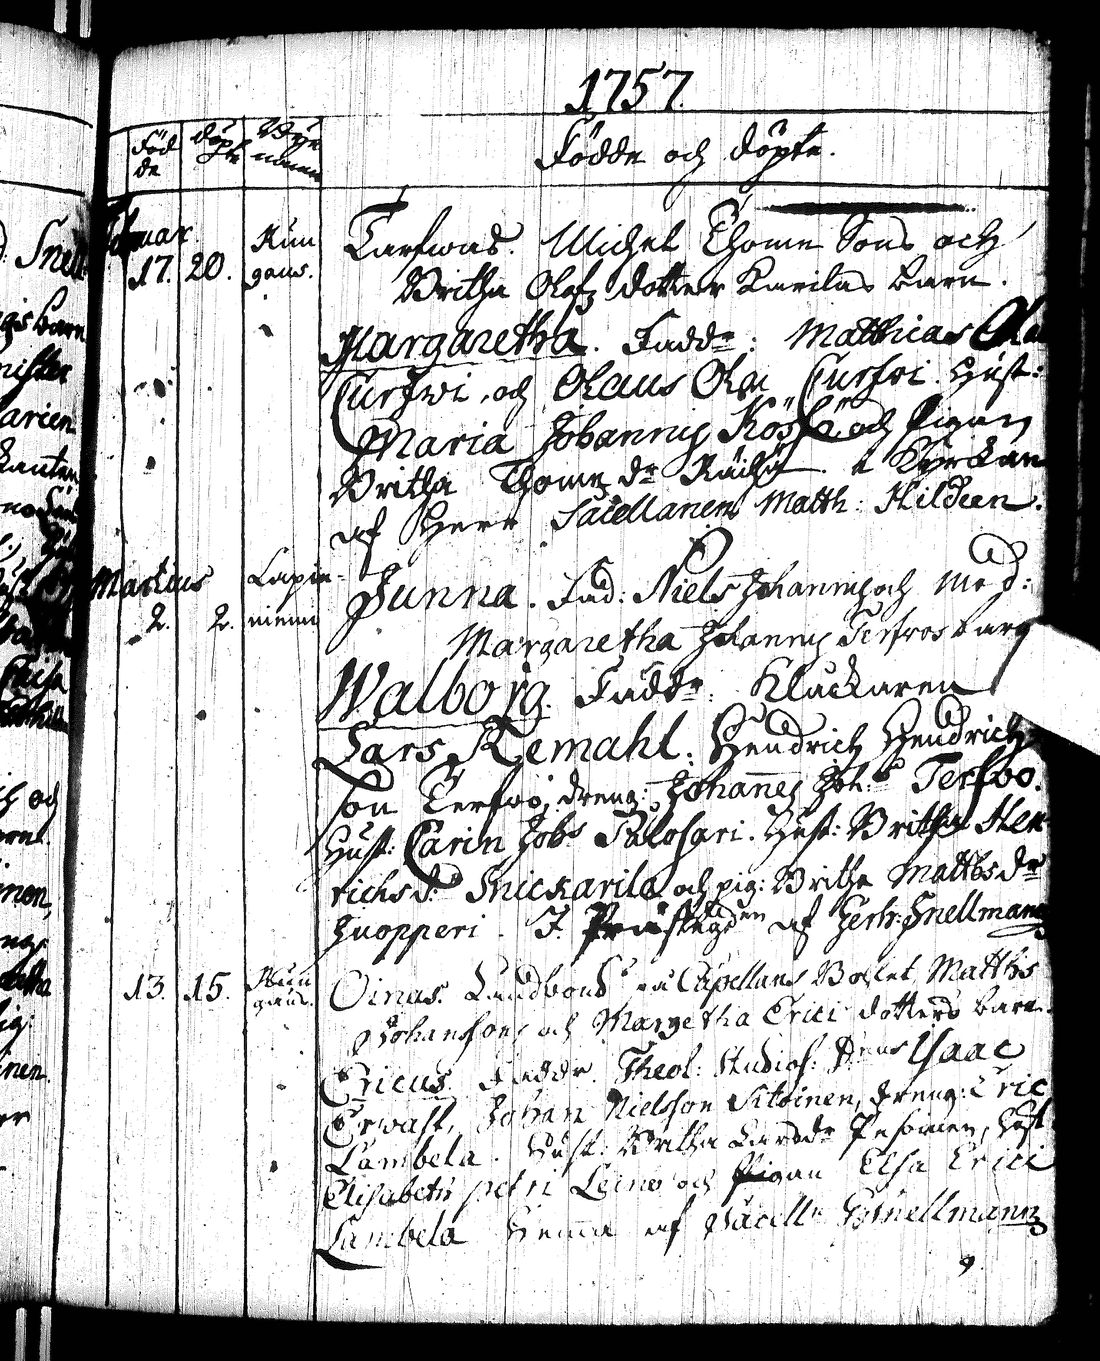 1757.
Föd
de
döp
te
Bÿe
namn
Födde och döpte.
Februar.
17. 20.
Kun
gaus.
Tarfwas. Michel Thome Sons och
Britha Olofz dotter Karilas barn.
Margaretha. Fadd:r: Matthias Ola
Curfwi, och Olaus Olai Curfvi. Hust:
Maria Johannis och Pigan
Britha Thome d:r i Kyrckan
af Herr Sacellanen Matth: Hildeen.
Martius
2. 2.
Lapin-
niemi
Junna. Fad: Niels Johannis och Mod:
Margaretha Johannis Terfwos barn
Walborg. Fadd:r: Kluckaren
Lars Kemahl. Hendrich Hendrich
son Terfwo, dreng: Johannes Joh:s Terfwo.
Hust: Carin Joh:s Palosari. Hust: Britha Hen
richs d:r Snickarila och pig: Britha Matths d:r
Juopperi. I Prästegden af Herr: Snellman
13. 15.
Kun
gaus.
Oinas. Landbond:s på Capellans Bohlet Matths
Johansons och Margetha Erici dotters barn.
Ericus. Faddr. Theol: Studios: Dens Isaac
Erwast, Johan Nielsson Sitoinen, dreng: Eric
Lambela. Hust: Britha Larsdr Pesoinen, Hust
Elisabeth Petri Leino och Pigan Elsa Erici
Lambela Hemma af Sacelln Snellmann